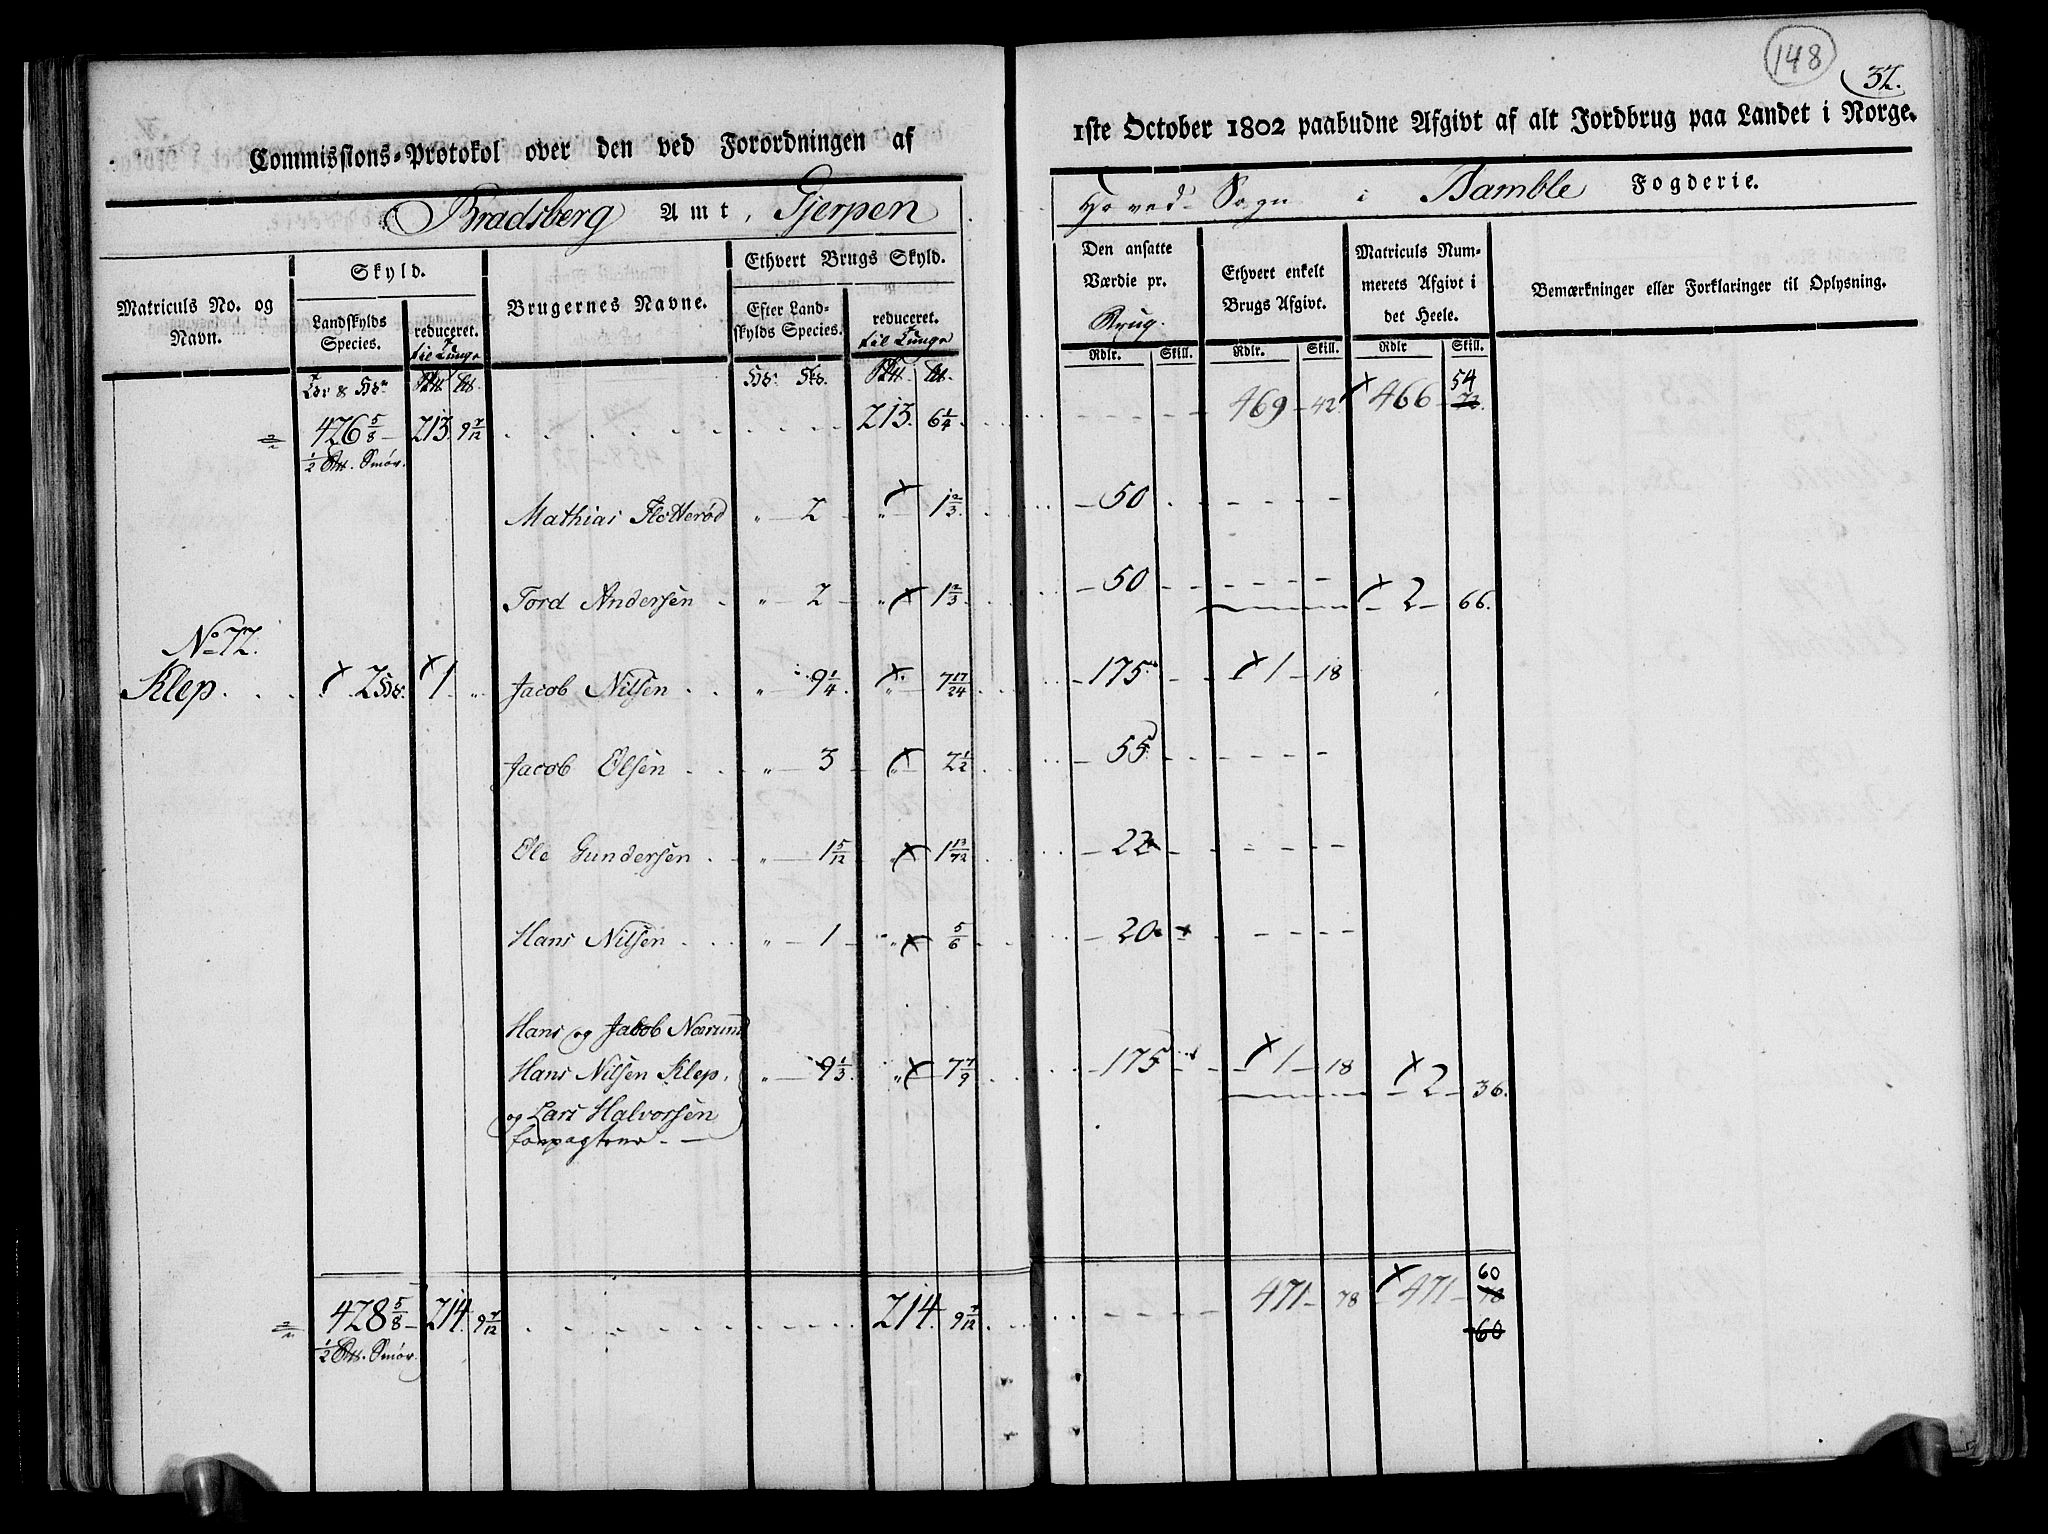 148
32.
Commissions-Protokol over den ved Forordningen af 1ste October 1802 paabudne Afgivt af alt Jordbrug paa Landet i Norge.
Bradsberg Amt, Gjerpen Hoved Sogn i Bamble Fogderie.
Matriculs No. og Navn.
Skyld.
Landskylds Species.
reduceret. til Tunge
Brugernes Navne.
Ethvert Brugs Skyld.
Efter Landskylds Species.
reduceret. til Tunge
Den ansatte Værdie pr. Brug.
Ethvert enkelt Brugs Afgivt.
Matriculs Nummerets Afgivt i det Heele.
Bemærkninger eller Forklaringer til Oplysning.
Rdlr. Skill. Rdlr. Skill. Rdlr Skill.
426 5/8 213. 9 7/12 213. 6 1/4 469 42 466 54 72
1/2 Smør.
Mathias Flotterød " 2 " 1 2/3 50
Tord Andersen " 2 " 1 2/3 50 2 66.
No 72.
Klep. 2 1 " Jacob Nilsen " 9 1/4 " 7 17/24 175 1 18
Jacob Olsen " 3 " 2 1/2 55
Ole Gundersen " 1 5/12 " 1 13/72 22
Hans Nilsen " 1 " 5/6 20
Hans og Jacob Nærum
Hans Nilsen Klep, " 9 1/3 " 7 7/9 175 1 18 2 36.
og Lars Halvorsen
forpagtere
428 5/8 214. 9 7/12 214. 9 7/12 471 78 471 60 78
60
1/2 Smør.